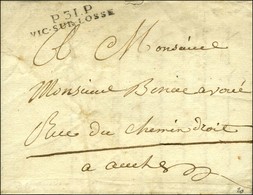 P.31.P
VIC-SUR-LOSSE
A Monsieur
Monsieur avoué
Rue du Chemin droit
a auch